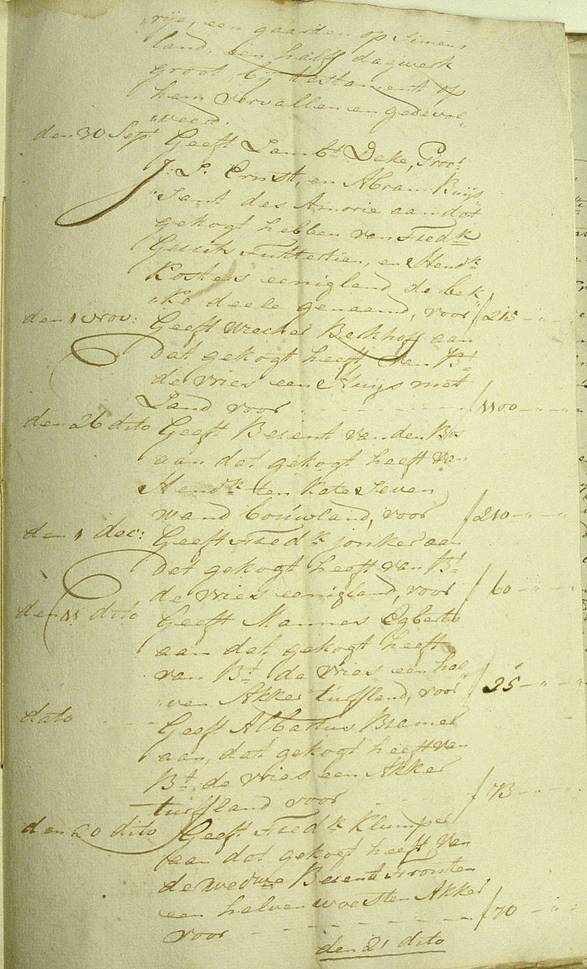 rije, een gaarden op Simens
land, een half dagwerk
groot bij testament op
hem vervallen en gedevol,
veerd.
den 30 Sept Geeft Lambt Deke, Proc:
J: L: Ernst, en Abram Buijs
Sant des Amorie aan dat
gekogt hebben van Fredk
Gerrits en Hendk
Kosters eenigland de bek
ke deele genaemd, voor f 215 - "
den 1 nov: Geeft Berkhoff aan
Dat gekogt heeft van Bt
de vries een Huijs met
Land voor - - - - - f 1100 - " - "
den 26 dito Geeft Berent van den Bos
aan dat gekogt heeft van
Hendk ten Kate Seven
wand bouwland, voor f 210 - " - "
den 1 dec: Geeft Fredk Jonker aan
Dat gekogt heeft van Bt
de vries eenigland, voor f 60 - " - "
den 11 dito Geeft Mannes Egberts
aan dat gekogt heeft
van Bt de vries een hal
ven Akker turfland, voor f 25 - " - "
dato - - Geeft Albartus Bramer
aan, dat gekogt heeft van
Bt de vries een Akker
turffland voor f 73 - " - "
den 20 dito Geeft Fredk Klumper
aan dat gekogt heeft van
de weduwe Berent Fronten
een halven woesten Akker
voor - - - - - f 70 - " - "
den 21 dito